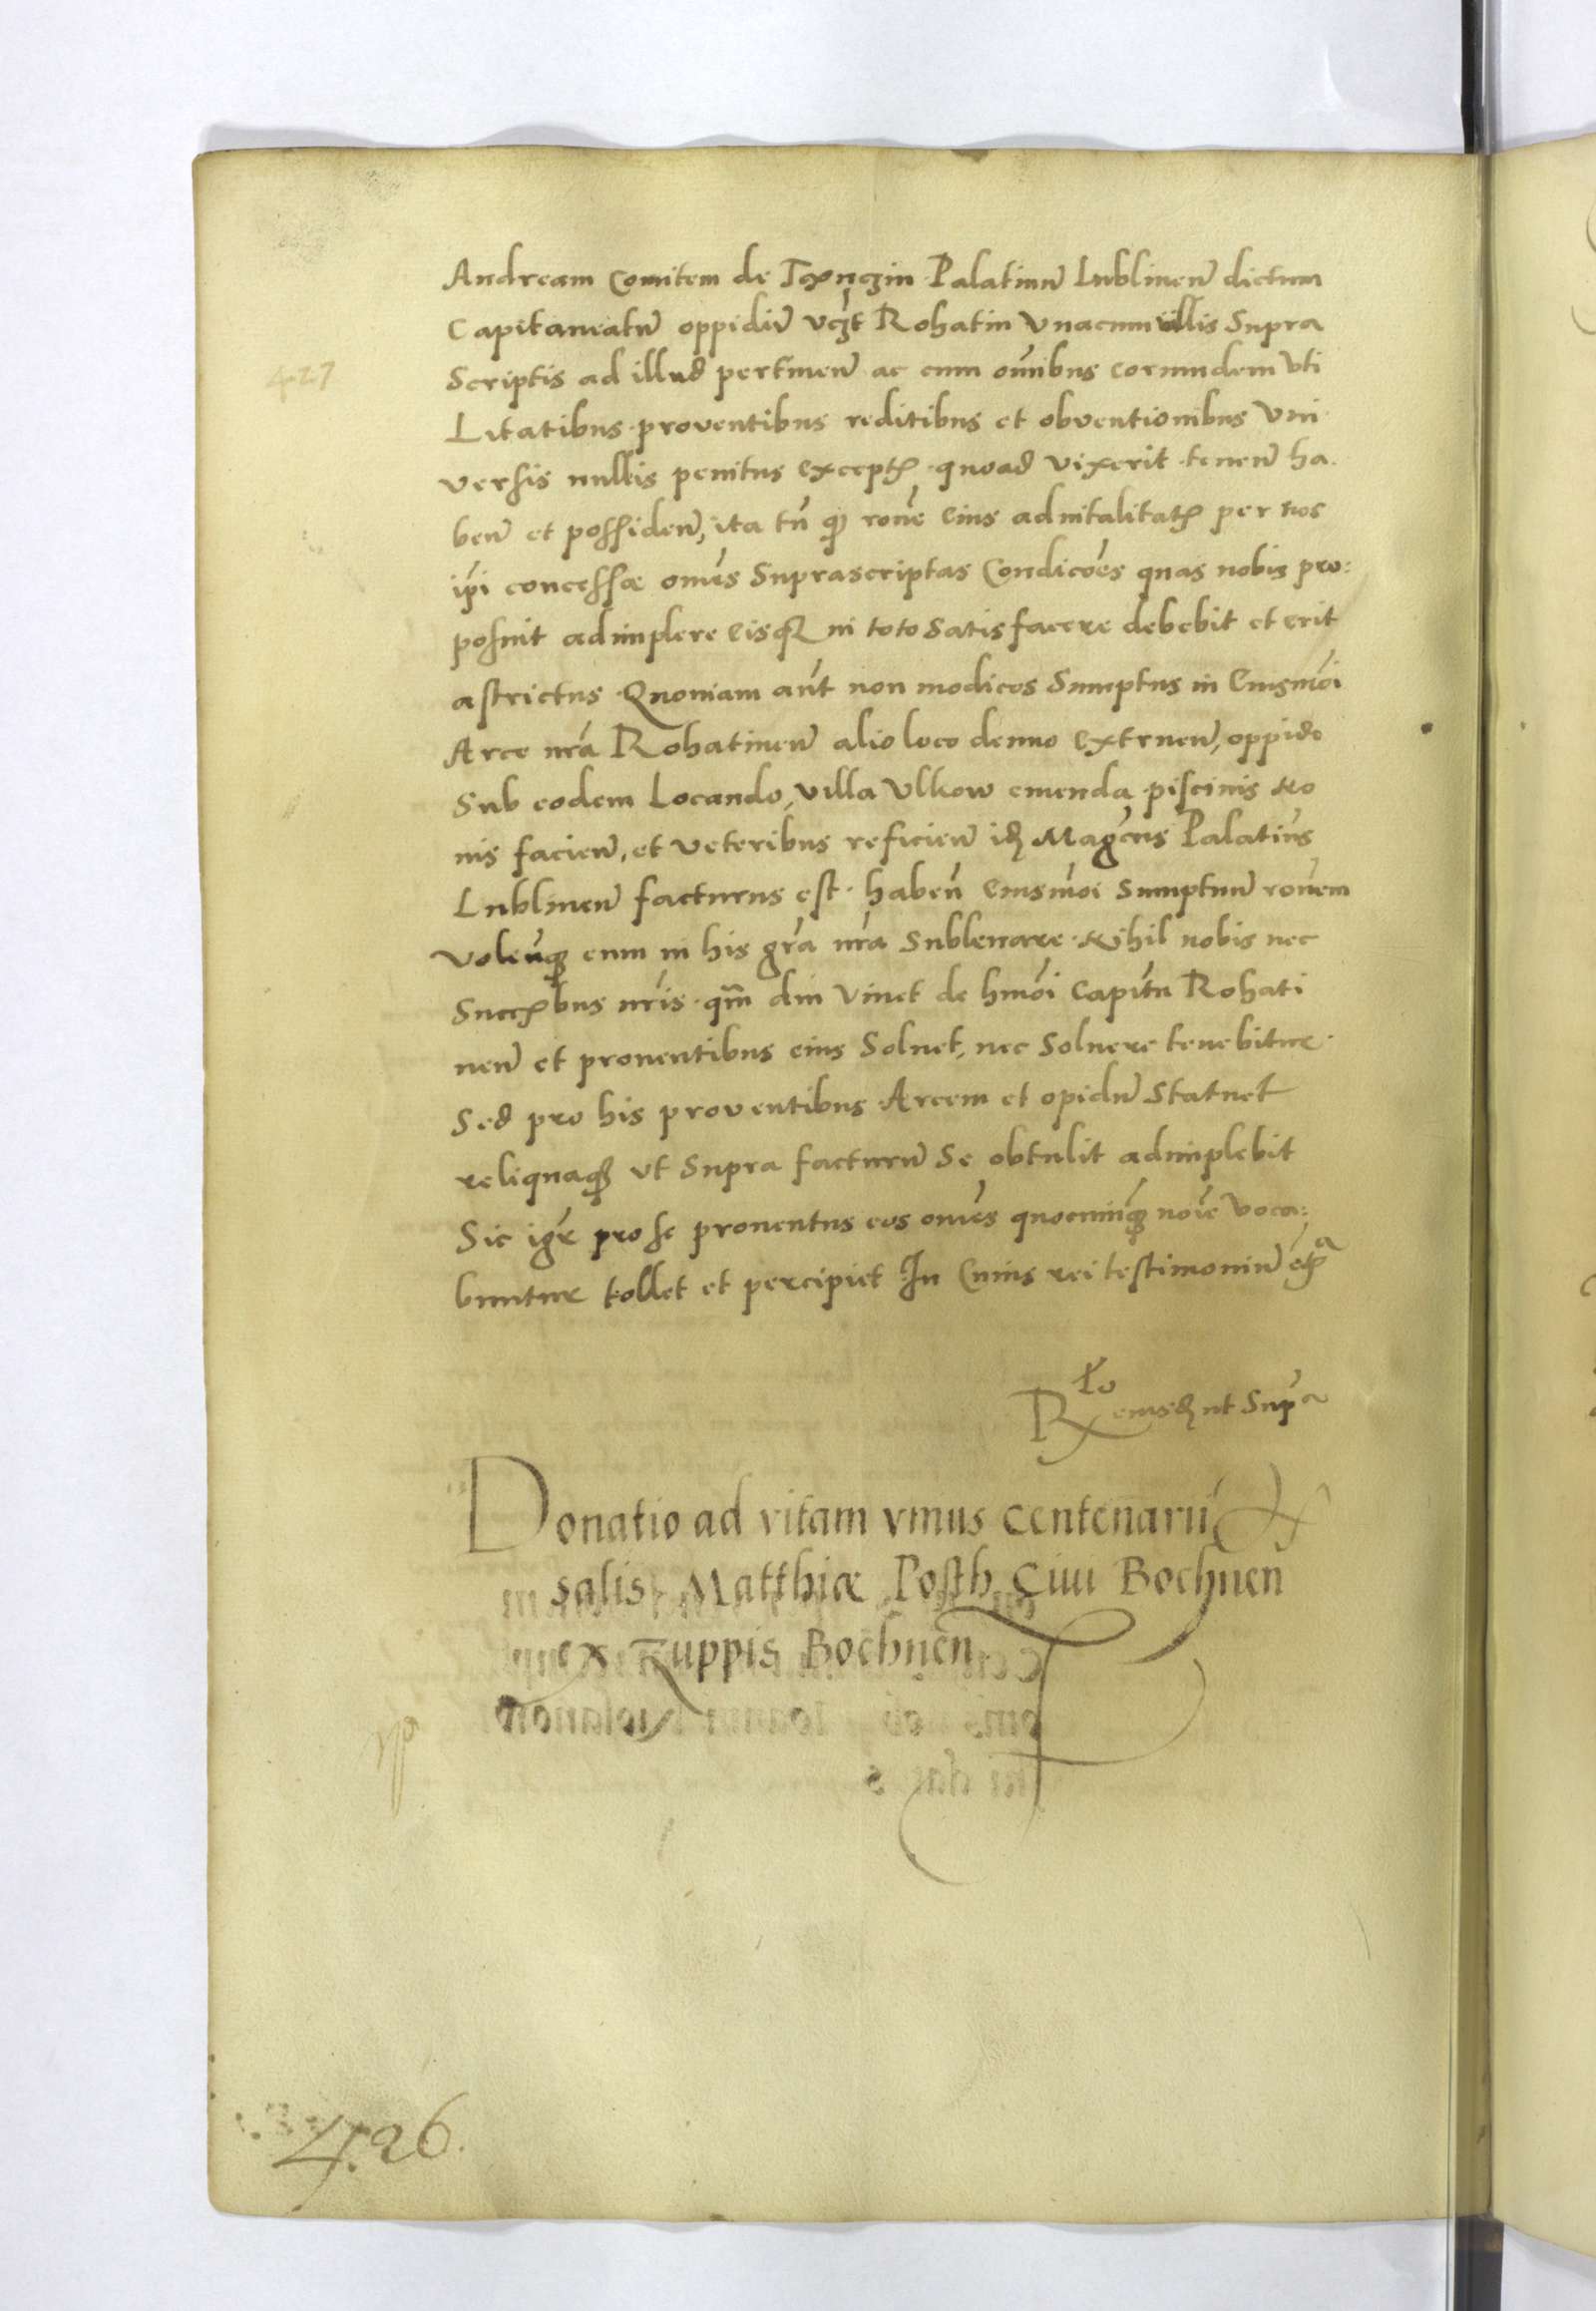 Andream Comitem de Tħenczin Palatinū Lublinen̄ dictum
Capitaneatū oppidū vcꝫt Rohatin vnacum villis Supra
427
Scriptis ad illud pertinen̄ ac cum om̄ibus eorumdem vti
Litatibus proventibus reditibus et obventionibus vni
versis nullis penitus exceptꝭ quoad vixerit tenen̄ ha
ben̄ et possiden̄, ita tn̄ ꝙ rōne eius advitalitatꝭ per nos
ip̄i concessæ omēs Suprascriptas Condicōes quas nobis pro:
posuit adimplere eisqꝫ in toto Satisfacere debebit et erit
astrictus Quoniam aut̄ non modicos Sumptus in eiusmōi
Arce nr̄a Rohatinen̄ alio loco denuo extruen̄, oppido
Sub eodem Locando, villa Vlkow emenda piscinis No
nis facien̄, et veteribus reficien̄ idꝫ Magcūs Palatinūs
Lublinen̄ facturus est. haben̄ eiusmōi Sumptuum rōnem
volen̄qꝫ eum in his gr̄a nr̄a Sublevare. Nihil nobis nec
Succꝭbus nr̄is qm̄ diu vivet de hmōi Capitn̄ Rohati
nen̄ et proventibus eius Solvet, nec Solvere tenebitur.
Sed pro his proventibus Arcem et opidū Statuet
reliquaqꝫ vt Supra facturū Se obtulit adimplebit
Sic igr̄ pro se proventus eos omēs quocumqꝫ noīe voca:
buntur tollet et percipiet In Cuius rei testimoniū etꝭa
Rlo eiusdꝫ ut Supa
Donatio ad vitam vnius centenarii
salis Matthiæ Posth Ciui Bochnen
ex Zuppis Bochnen̄
4.26.